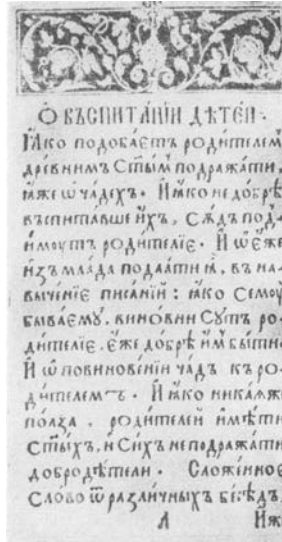 Ѻ ВЪСПИТА́НІИ ДѢТЕЙ.
Ꙗ́ко подоба́етъ роди́телем
дре́внимъ ст҃ы́м подража́ти,
ꙗ́же ѡ҆ ча́дехъ. И҆ ꙗ҆́ко не до́брѣ
въспита́вше и҆́хъ, сꙋ́дъ под-
и́мꙋтъ роди́теліе. И҆ ѡ҆ є҆́же
и҆зъ мла́да подаѧ́ти ѧ҆̀, въ на-
ꙋче́ніе писа́ній: ꙗ҆́ко семꙋ̀
быва́емꙋ, вино́вни сꙋ́ть ро-
ди́теліе. є҆́же до́брѣ и҆̀м бы́тию
И҆ ѡ҆ повинове́ніи ча́дъ къ ро-
ди́телемъ. И҆ ꙗ҆́ко ника́ѧже
по́лза. роди́телей и҆мѣ́ти
ст҃ы́хъ, и҆ си́хъ не подража́ти
добродѣ́тели. Сложе́нное
сло́во ѿ разли́чныхъ бесѣ́дъ,
А И҆́ж